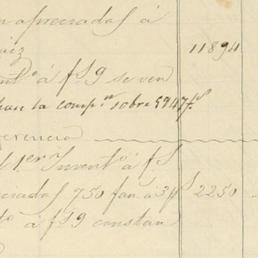 n apreciadas á
11894
nt.º á f.s 9 se ven
la comp.n sobre 5947 f.s
erencia
l 1.er Invent.º á f.s
ciadas 750 fan á 3 p.s 2250
á f.s 9 constan